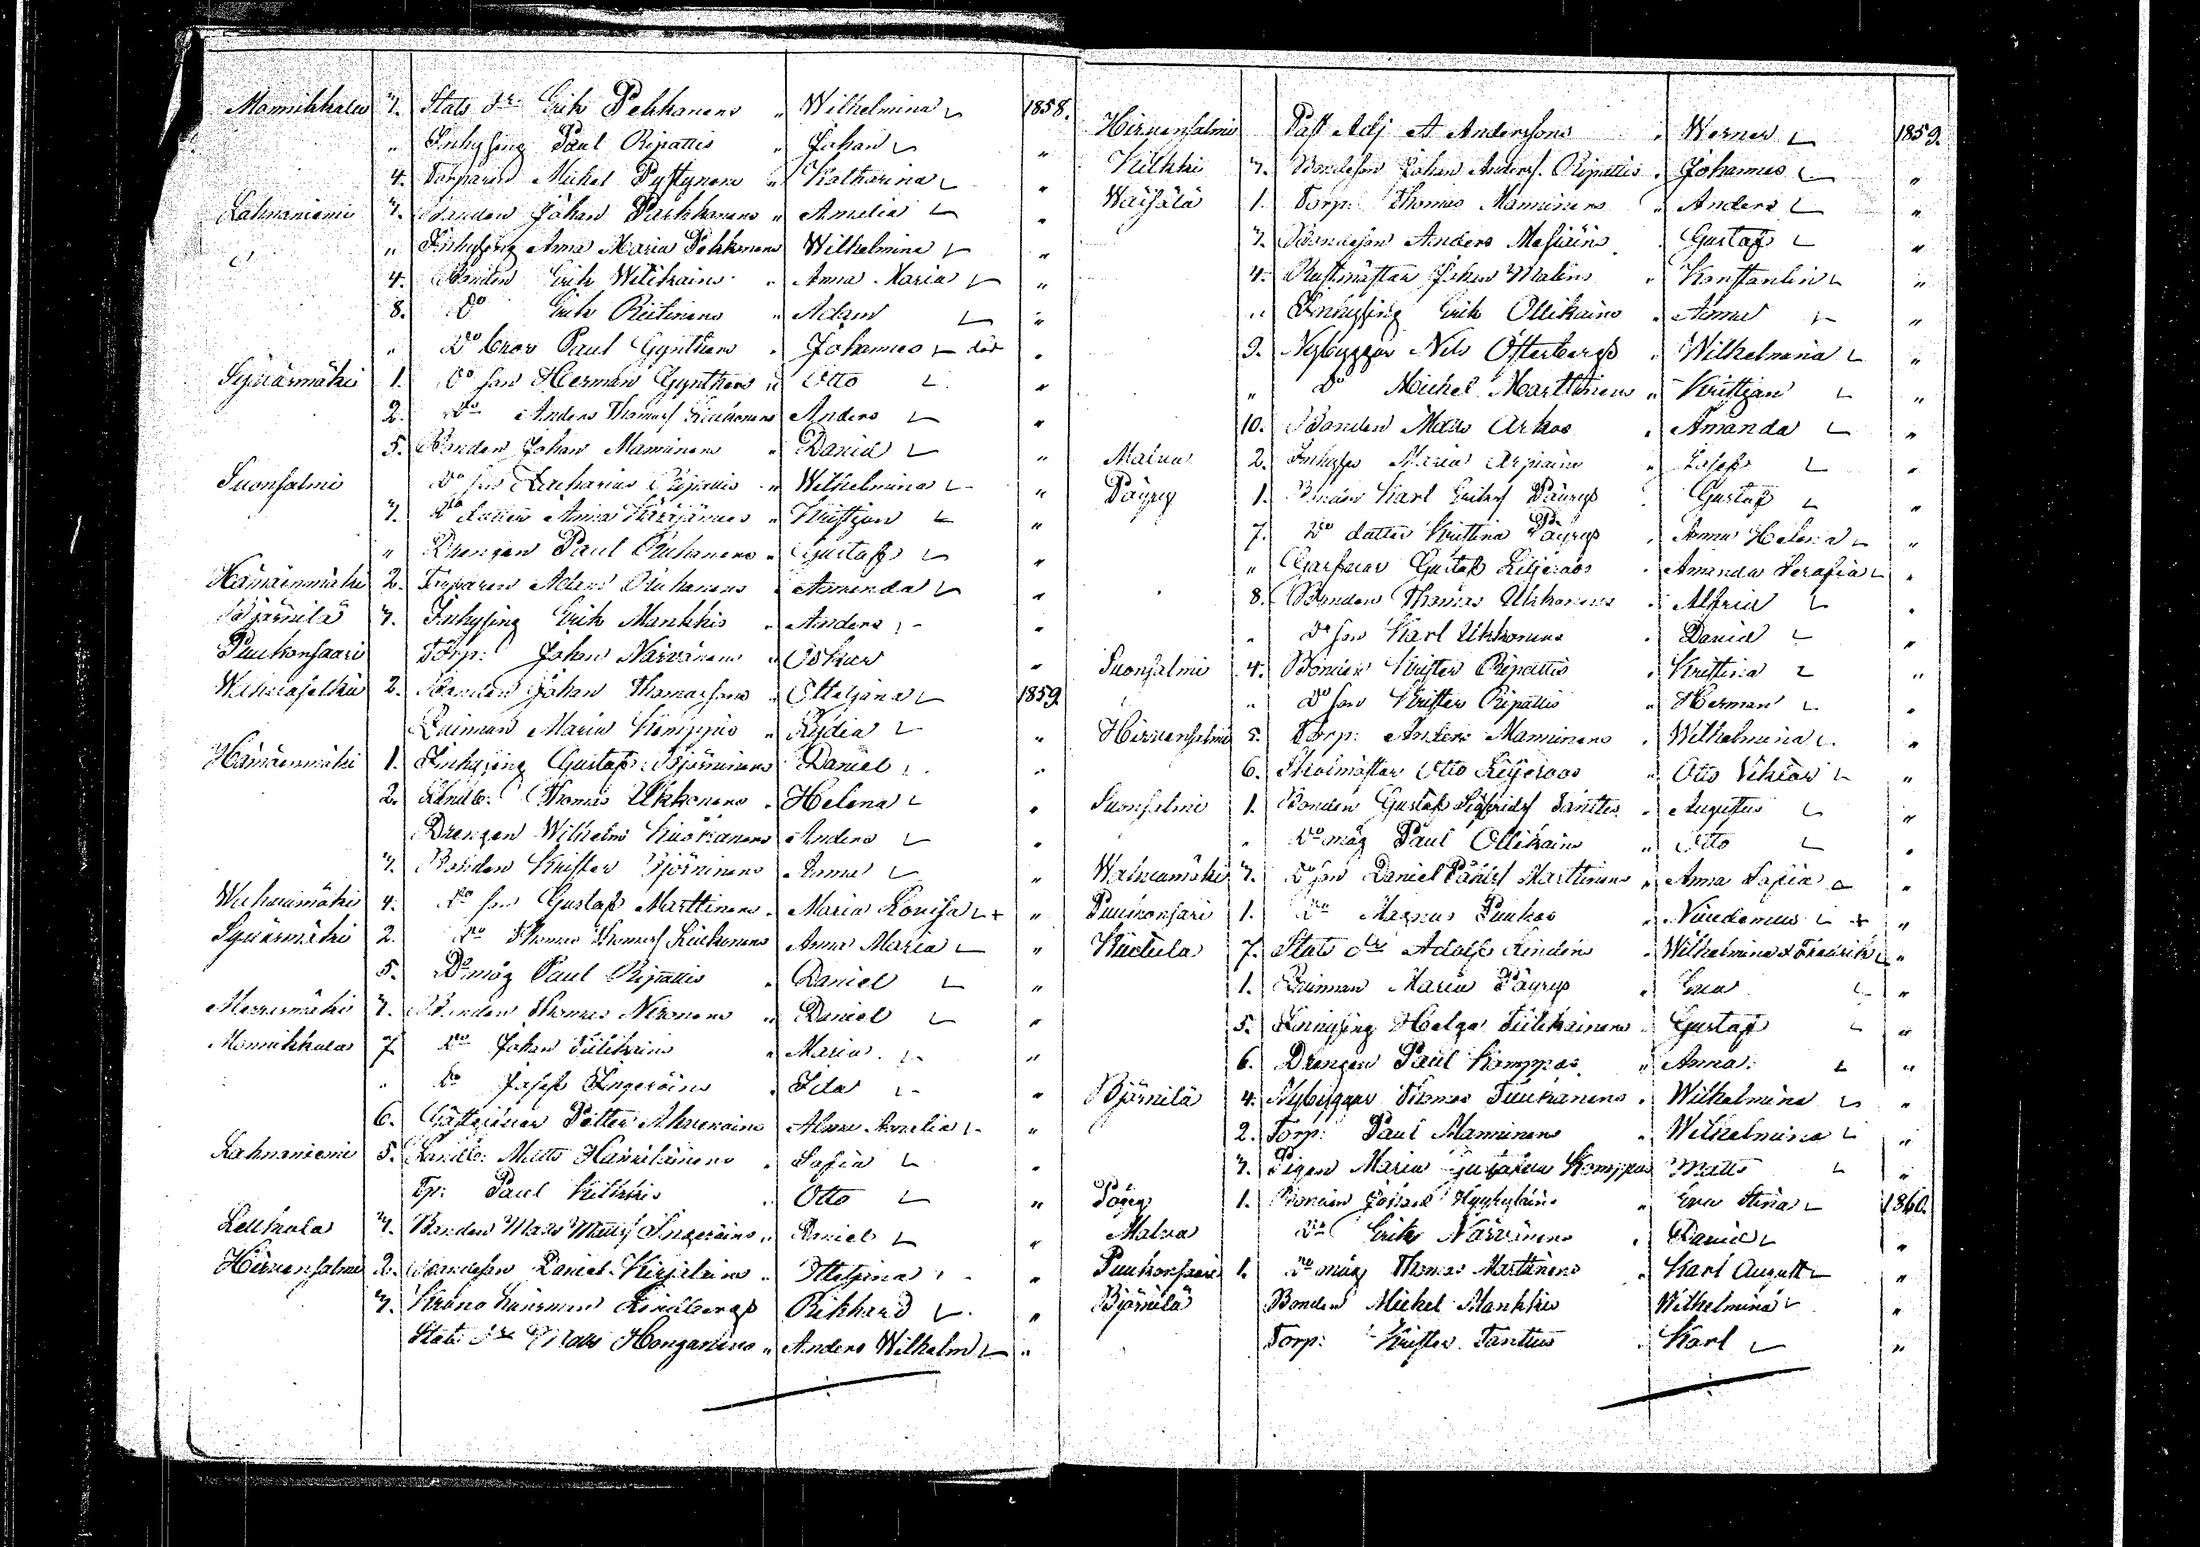 Momikkala 7. Stats dr. Erik Pekkanens " Wilhelmina 1858.
" Inhysing Paul Ripattis " Johan "
4. Torparen Mickel Pystynens " Katharina "
Lahnaniemi 7. Bonden Johan Parkkonens " Amalia "
" Inhysing Anna Maria Pekkanens Wilhelmina "
4. Bonden Erik Wilikains " Anna Maria "
8. Do Erik Reilinens " Adam "
" Do bror Paul Gynthers " Johannes död "
Syväsmäki 1. Do son Herman Gynthers " Otto "
2. Do Anders Thomas Liukonens Anders "
5. Bonden Johan Manninens " David "
Suonsalmi Do son Zacharias Ripattis " Wilhelmina "
7. Do dotter Anna " Kristjan "
" Drengen Paul Liukanens " Gustaf "
Hämäenmäki 2. Torparen Adam Liukanens " Amanda "
Björnilä 7. Inhysing Erik Mankkis " Anders "
Puukonsaari Torp: Johan Närvänens " Oskar "
2. Bonden Johan Thomassons " Ottiljana 1859.
Quinnan Maria Kamppis " Lydia "
Hämäenmäki 1. Inhysing Gustaf Björninens Daniel "
2. Landb: Thomas Ukkonens " Helena "
Drengen Wilhelm Kuokanens Anders "
7. Bonden Krister Björninens " Anna "
Wahvamäki 4. Do son Gustaf Marttinens " Maria Lovisa + "
Syväsmäki 2. Do Thomas Thomas Liukonens Anna Maria "
5. Do måg Paul Ripattis " Daniel "
7. Bonden Thomas Nironens " Daniel "
Momikkala 7 Do Johan Tiilikains " Maria "
" Do Josef Ingeröins " Ida "
6. Gästgifvar Petter Ahvenains Alma Amalia "
Lahnaniemi 5. Landb: Matts Hannikainens " Sofia "
Tp: Paul Kilkkis " Otto "
Lellkola 7. Bonden Mats Matts Ingeröins " Daniel "
Hirvensalmi 2. Bondeson Daniel Kirjalains " Ottiljana "
7. Krono Länsman Lindbergs Rikhard "
Stats dr. Mats Hongonens " Anders Wilhelm "
Hirvensalmi Past Adj A Anderssons " Werner 1859.
Kilkki 7. Bondeson Johan Anders. Ripattis " Johannes "
Wäisälä 1. Torp: Thomas Manninens " Anders "
7. Bondeson Anders Masiains " Gustaf "
4. Rustmästar Johan Malins " Konstantin "
" Inhysing Erik Ollikains " Anna "
9. Nybyggar Nils Österbergs " Wilhelmina "
" Do Mickel Marttinens " Kristjan "
10. Bonden Mats Arhos " Amanda "
Malva 2. Inhyses Maria Arpiains " Josef "
Päyry 1. Bonden Karl Päyrys " Gustaf "
7. Do dotter Kristina Päyrys " Anna Helena "
" Garfvar Gustaf Liljeroos " Amanda Serafia "
8. Bonden Thomas Ukkonens " Alfrid "
" Do son Karl Ukkonens " David "
Suonsalmi 4. Bonden Krister Ripattis " Kristina "
" Do son Krister Ripattis " Herman "
Hirvensalmi 5. Torp: Anders Manninens " Wilhelmina "
6. Skolmästar Otto Liljeroos " Otto Viktor "
Suonsalmi 1. Bonden Gustaf Sigfrids Tanttus " Augustus "
" Do måg Paul Ollikains " Otto "
Wahvamäki 7. Do son Daniel Daniels Marttinens " Anna Sofia "
Puukonsari 1. Do Magnus Puukos " Nikodemus + "
Kuitula 7. Stats dr. Adolf Lindéns " Wilhelmina & Fredrik "
1. Quinnan Maria Päyrys " Eva "
5. Inhysing Helga Tiilikainens " Gustaf "
6. Drengen Paul Kamppas " Anna "
Björnilä 4. Nybyggar Thomas Tuukanens " Wilhelmina "
2. Torp: Paul Manninens " Wilhelmina "
7. Pigan Maria Gustafva Kamppas Matts "
Päyry 1. Bonden " Eva Stina 1860.
Malva Do Erik Närvänens " Daniel "
Puukonsaari 1. Do måg Thomas Marttinens " Karl August "
Björnilä Bonden Mickel Mankkis Wilhelmina "
Torp: Krister Tanttus " Karl "